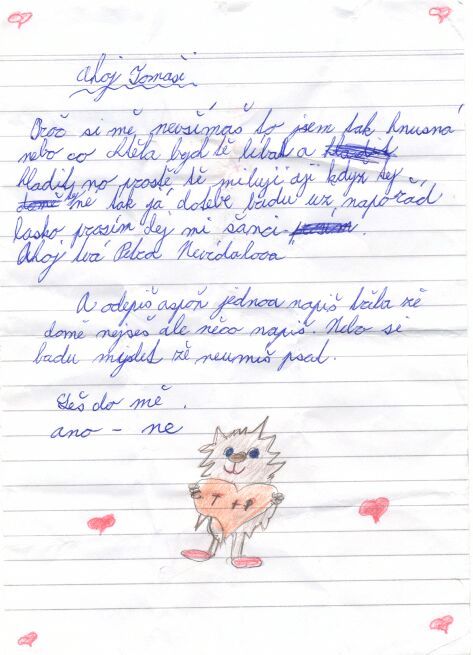 Ahoj Tomaši
Proč si mě nevšímaš to jsem tak hnusná
nebo co chtěla bych tě líbat a
hladit no prostě tě miluji aji když ty
mě tak já do tebe budu už napořád
lasko prosím dej mi šanci prosím.
Ahoj tvá Petra Nevídalova
A odepiš aspoň jednou napiš třeba že
domě nejseš ale něco napiš. Nebo si
budu myslet že neumíš psat.
Seš do mě.
ano - ne
T + P